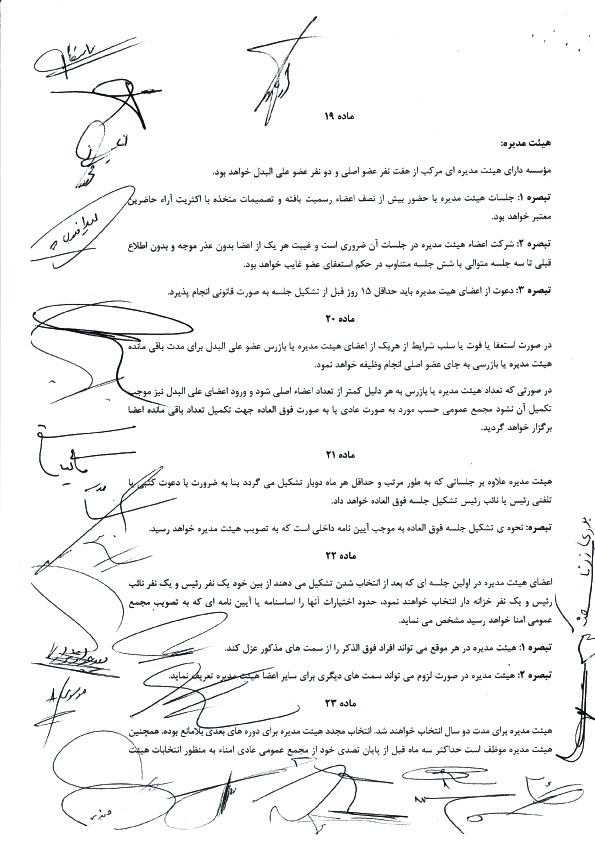 ماده ۱۹
هیئت مدیره:
مؤسسه دارای هیئت مدیره ای مرکب از هفت نفر عضو اصلی و دو نفر عضو علی البدل خواهد بود.
تبصره ۱: جلسات هیئت مدیره با حضور بیش از نصف اعضاء رسمیت یافته و تصمیمات متخذه با اکثریت آراء حاضرین
معتبر خواهد بود.
تبصره ۲: شرکت اعضاء هیئت مدیره در جلسات آن ضروری است و غیبت هر یک از اعضا بدون عذر موجه و بدون اطلاع
قبلی تا سه جلسه متوالی یا شش جلسه متناوب در حکم استعفای عضو غایب خواهد بود.
تبصره ۳: دعوت از اعضای هیت مدیره باید حداقل ۱۵ روز قبل از تشکیل جلسه به صورت قانونی انجام پذیرد.
ماده ۲۰
در صورت استعفا یا فوت یا سلب شرایط از هریک از اعضای هیئت مدیره یا بازرس عضو علی البدل برای مدت باقی مانده
هیئت مدیره یا بازرسی به جای عضو اصلی انجام وظیفه خواهد نمود.
در صورتی که تعداد هیئت مدیره یا بازرس به هر دلیل کمتر از تعداد اعضاء اصلی شود و ورود اعضای علی البدل نیز موجب
تکمیل آن نشود مجمع عمومی حسب مورد به صورت عادی یا به صورت فوق العاده جهت تکمیل تعداد باقی مانده اعضا
برگزار خواهد گردید.
ماده ۲۱
هیئت مدیره علاوه بر جلساتی که به طور مرتب و حداقل هر ماه دوبار تشکیل می گردد بنا به ضرورت با دعوت کتبی یا
تلفنی رئیس یا نائب رئیس تشکیل جلسه فوق العاده خواهد داد.
تبصره: نحوه ی تشکیل جلسه فوق العاده به موجب آیین نامه داخلی است که به تصویب هیئت مدیره خواهد رسید.
ماده ۲۲
اعضای هیئت مدیره در اولین جلسه ای که بعد از انتخاب شدن تشکیل می دهند از بین خود یک نفر رئیس و یک نفر نائب
رئیس و یک نفر خزانه دار انتخاب خواهند نمود، حدود اختیارات آنها را اساسنامه یا آیین نامه ای که به تصویب مجمع
عمومی امنا خواهد رسید مشخص می نماید.
تبصره ۱: هیئت مدیره در هر موقع می تواند افراد فوق الذکر را از سمت های مذکور عزل کند.
تبصره ۲: هیئت مدیره در صورت لزوم می تواند سمت های دیگری برای سایر اعضا هیئت مدیره تعریف نماید.
ماده ۲۳
هیئت مدیره برای مدت دو سال انتخاب خواهند شد. انتخاب مجدد هیئت مدیره برای دوره های بعدی بلامانع بوده. همچنین
هیئت مدیره موظف است حداکثر سه ماه قبل از پایان تصدی خود از مجمع عمومی عادی امناء به منظور انتخابات هیئت